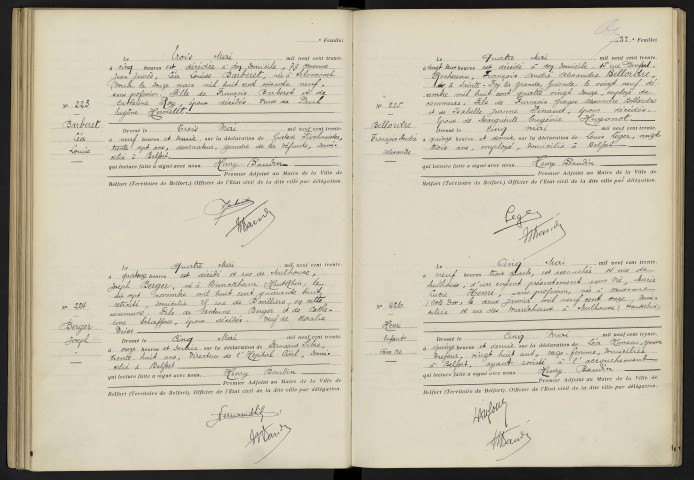 ° Feuillet
Le Trois Mai mil neuf cent trente,
à cinq heures est décédée à son domicile, 73 avenue
Jean Jaurès, Léa Louise Barberet, née à
Doubs le onze mars mil huit cent soixante neuf,
sans profession. Fille de François Barberet et de
Catherine Roy, époux décédés. Veuve de Paul
Eugène
N° 223
Barberet
Léa
Louise
Dressé le Trois Mai mil neuf cent trente,
à neuf heures et demie, sur la déclaration de Gustave
trente sept ans, dessinateur, gendre de la défunte, domi-
cilié à Belfort
qui lecture faite a signé avec nous, Henry Baudin
Premier Adjoint au Maire de la Ville de
Belfort (Territoire de Belfort), Officier de l'État civil de la dite ville par délégation.
Le Quatre Mai mil neuf cent trente,
à quatorze heures est décédé 14 rue de Mulhouse,
Joseph Berger, né à (Haut-Rhin), le
dix sept novembre mil huit cent quarante huit,
retraité, domicilié 4 rue de Banvillars, en cette
commune. Fils de Berger et de Cathe-
rine Schaffar, époux décédés. Veuf de Rosalie
N° 224
Berger
Joseph
Dressé le Cinq Mai mil neuf cent trente,
à onze heures et demie, sur la déclaration de
trente huit ans, Directeur de l'Hôpital Civil, domi-
cilié à Belfort
qui lecture faite a signé avec nous, Henry Baudin
Premier Adjoint au Maire de la Ville de
Belfort (Territoire de Belfort), Officier de l'État civil de la dite ville par délégation.
57 ° Feuillet
Le Quatre Mai mil neuf cent trente,
à vingt deux heures est décédé à son domicile 11 rue Denfert-
Rochereau, François André Alexandre Bellordre,
né à Sainte-Foy la Grande, Gironde, le vingt neuf dé-
cembre mil huit cent quatre vingt douze, employé de
commerce. Fils de François Georges Alexandre Bellordre
et de Isabelle Jeanne, époux décédés.
Époux de Marguerite Eugénie Hugonot
N° 225
Bellordre
François André
Alexandre
Dressé le Cinq Mai mil neuf cent trente,
à quinze heures et demie, sur la déclaration de Louis Léger, vingt
trois ans, employé, domicilié à Belfort
qui lecture faite a signé avec nous, Henry Baudin
Premier Adjoint au Maire de la Ville de
Belfort (Territoire de Belfort), Officier de l'État civil de la dite ville par délégation.
Léger
Le Cinq Mai mil neuf cent trente,
à neuf heures trois quarts, est accouchée 14 rue de
Mulhouse, d'un enfant présentement sans vie, Marie
Lucie Henri, sans profession, née à
le deux janvier mil neuf cent onze, domi-
ciliée 14 rue des Maréchaux à Mulhouse (Haut-Rhin)
N° 226
Henri
Enfant
sans vie
Dressé le Cinq Mai mil neuf cent trente,
à quinze heures et demie, sur la déclaration de Léa, épouse
Dufour, vingt huit ans, sage-femme, domiciliée
à Belfort, ayant assisté à l'accouchement
qui lecture faite a signé avec nous, Henry Baudin
Premier Adjoint au Maire de la Ville de
Belfort (Territoire de Belfort), Officier de l'État civil de la dite ville par délégation.